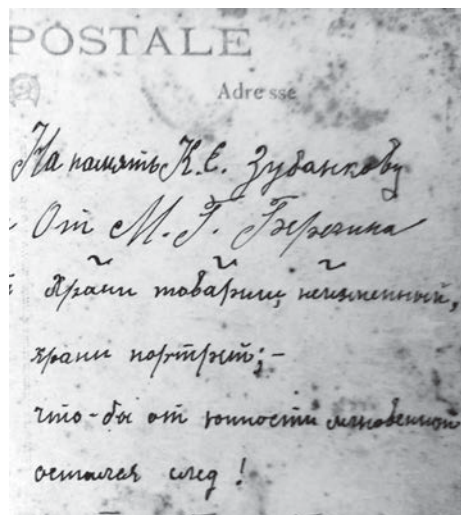 POSTALE
Adresse
На память К. Е. Зубанкову
От М. Г. Березина
Храни товарищ, неизменный,
храни портрет;-
что-бы от юности мгновенной
остался след!